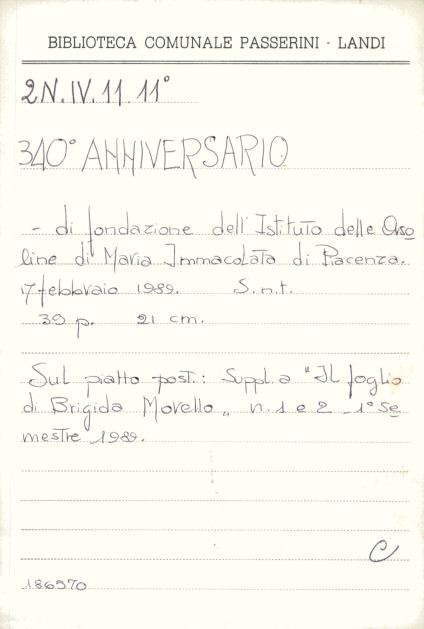 BIBLIOTECA COMUNALE PASSERINI - LANDI
2N.IV.11.11°
340° ANNIVERSARIO
- di fondazione dell'Istituto delle Orso
line di Maria Immacolata di Piacenza.
17 febbraio 1989. S.n.t.
39 p. 21 cm.
Sul piatto post.: Suppl. a "Il foglio
di Brigida Morello" n. 1 e 2 - 1° Se
mestre 1989.
C
186570